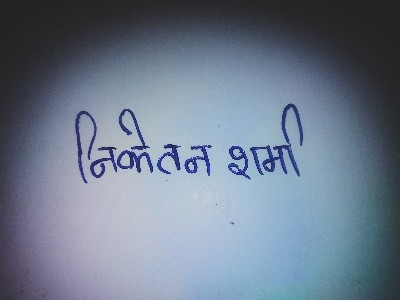 निकेतन शर्मा